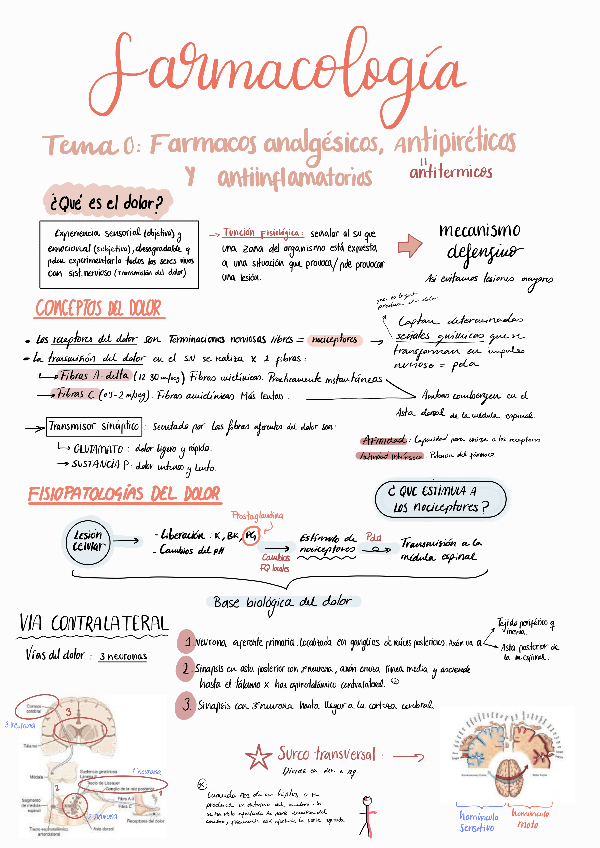 Farmacología
Tema 0: Farmacos analgésicos, Antipiréticos
y antiinflamatorios
"
antitermicos
¿Qué es el dolor?
Experiencia sensorial (objetivo) y
emocional (subjetivo), desagradable q
pden experimentarla todos los seres vivos
con sist. nervioso (transmisión del dolor)
→ Función Fisiológica: señalar al su que
una zona del organismo está expuesta
a una situación que provoca/pde provocar
una lesión.
mecanismo
defensivo
Así evitamos lesiones mayores
CONCEPTOS DEL DOLOR
• Los receptores del dolor son Terminaciones nerviosas libres = nociceptores →
Captan determinadas
señales químicas que se
transforman en impulso
nervioso = pda
• La transmisión del dolor en el SN se realiza x 2 fibras:
→ Fibras A-delta (12-30 m/seg) Fibras mielínicas. Prácticamente instantáneas
→ Fibras C (0'5-2 m/seg). Fibras amielínicas Más lentas.
Ambas convergen en el
Asta dorsal de la médula espinal.
→ Transmisor sináptico: Secretado por las fibras aferentes del dolor son:
→ GLUTAMATO: dolor ligero y rápido.
→ SUSTANCIA P: dolor intenso y lento.
Afinidad: Capacidad para unirse a los receptores
Actividad intrínseca: Potencia del fármaco
FISIOPATOLOGÍAS DEL DOLOR
¿QUE ESTIMULA A
LOS NOCICEPTORES?
Prostaglandina
Lesión
celular
- Liberación: K, BK, PG
- Cambios del pH
Cambios
FQ locales
Estímulo de
nociceptores
Pda
Transmisión a la
médula espinal
Base biológica del dolor
VIA CONTRALATERAL
Vías del dolor: 3 neuronas
1 Neurona aferente primaria. Localizada en ganglios de raíces posteriores. Axón va a
Tejido periférico q
inerva.
Asta posterior de
la m. espinal.
2. Sinapsis en asta posterior con 2ª neurona, axón cruza línea media y asciende
hasta el tálamo x haz espinotalámico contralateral.
3. Sinapsis con 3ª neurona hasta llegar a la corteza cerebral.
Corteza
cerebral
3
3ª neurona
Tálamo
1ª neurona
Médula
Ganglio de la raíz posterior
2
Fibra A
Fibra C
1
Segmento de
médula espinal
2ª neurona
Receptores del dolor
Asta dorsal
Surco transversal:
homúnculo
sensitivo
homúnculo
motor